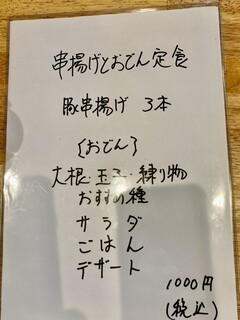 串揚げとおでん定食
豚串揚げ 3本
〔おでん〕
大根・玉子・練り物
おすすめ種
サラダ
ごはん
デザート
1000円
(税込)